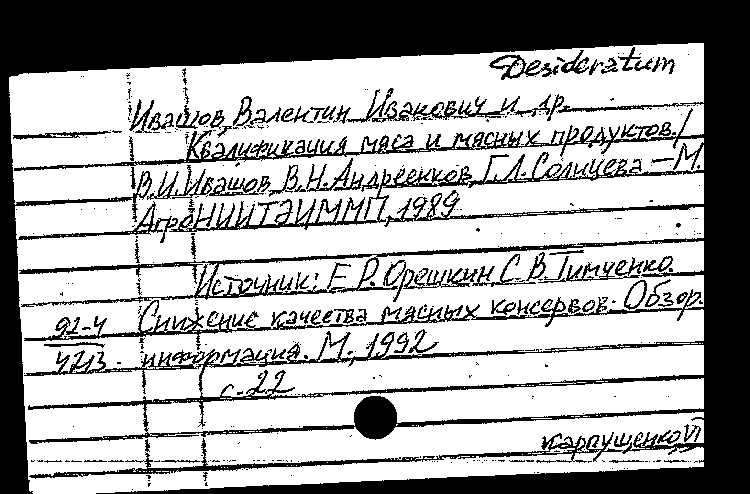 Desideratum
Ивашов, Валентин Иванович и др.
Квалификация мяса и мясных продуктов. /
В.И. Ивашов, В.Н. Андреенков, Г.Л. Солнцева. — М.
АгроНИИТЭИММП, 1989
Источник: Е.Р. Орешкин С.В. Тимченко.
Снижение качества мясных консервов. Обзор.
92-4
4213. информация. М., 1992
с. 22
Карпущенко, VI